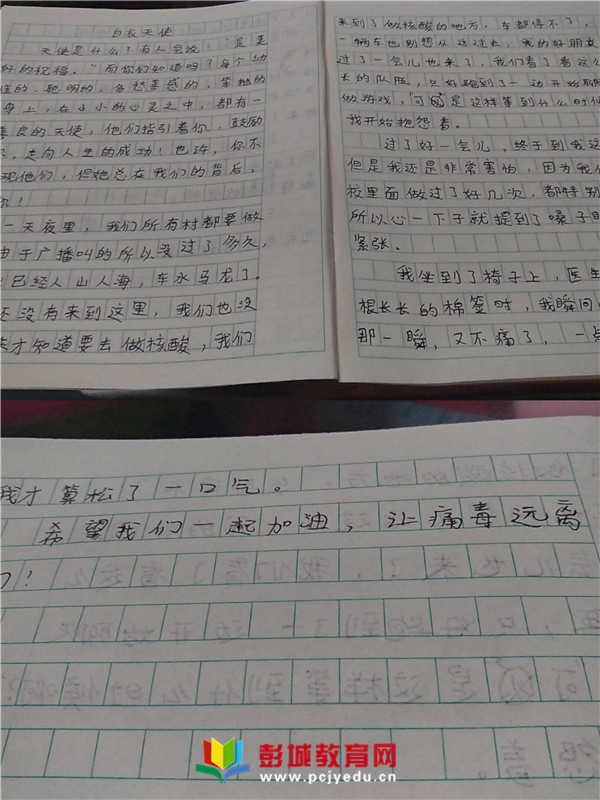 白衣天使
天使是什么？有人会说："是美
好的祝福。"而你们知道吗？每个幼
稚的、聪明的、多愁善感的、笨拙的
身上，在小小的心灵之中，都有一
善良的天使，他们指引着你、鼓励
，走向人生的成功！也许，你不
现他们，但她总在我们的背后，
你！
一天夜里，我们所有村都要做
由于广播叫的所以没过了多久，
已经人山人海，车水马龙了。
还没有来到这里，我们也没
来才知道要去做核酸，我们
来到了做核酸的地方，车都停不了，
一辆车也别想从这过去，我的好朋友
过了一会儿也来了，我们看了看这么
长的队伍，只好跑到了一边开始聊
做游戏，"可是这样等到什么时候
我开始抱怨着。
过了好一会儿，终于到我这
但是我还是非常害怕，因为我们
校里面做过了好几次，都特别
所以心一下子就提到了嗓子眼
紧张。
我坐到了椅子上，医生
根长长的棉签时，我瞬间
那一瞬，又不痛了，一点
我才算松了一口气。
希望我们一起加油，让病毒远离
们！
彭城教育网
www.pcjyedu.cn